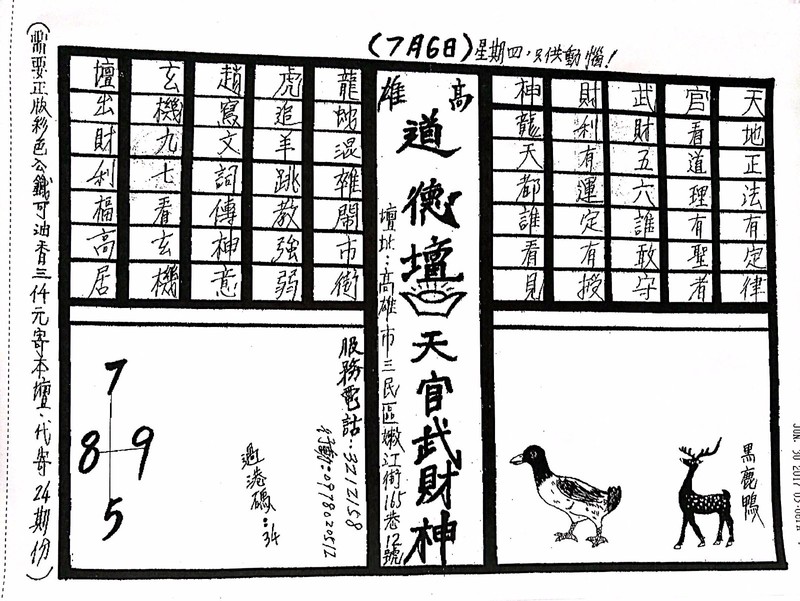 (7月6日)星期四，只供動惱!
天地正法有定律
官看道理有聖者
武財五六誰敢守
財利有運定有授
神龍天都誰看見
高雄
道德壇
天官武財神
壇址:高雄市三民區嫩江街165巷12號
龍地混雜鬧市街
虎追羊跳教強弱
趙寫文詞傳神意
玄機九七看玄機
壇出財利福高居
黑鹿鴨
服務電話:3212158
行動:0978020512
過港碼:34
7
8 9
5
(需要正版彩色公鐵可油香三仟元寄本壇.代寄24期份)